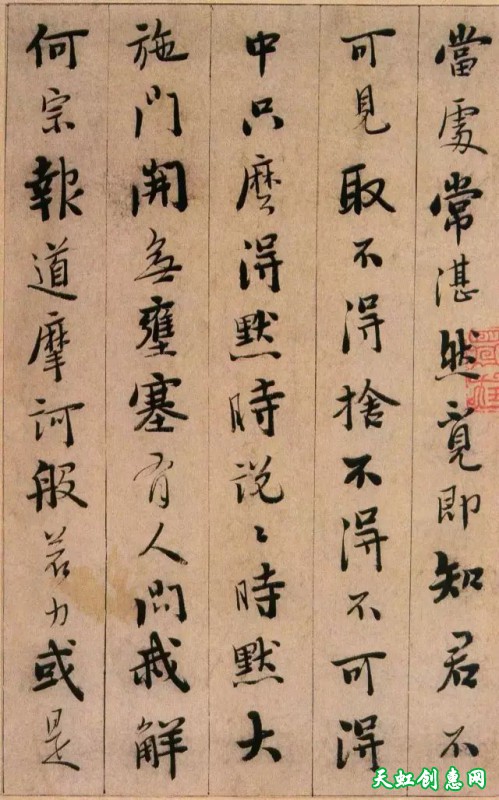 當處常湛然覓即知君不
可見取不得捨不得不可得
中只麼得默時説〻時默大
施門開無壅塞有人問我解
何宗報道摩訶般若力或是
天虹创惠网